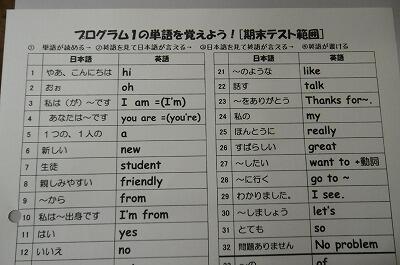 プログラム1の単語を覚えよう!［期末テスト範囲］
① 単語が読める→ ②英語を見て日本語が言える→ ③日本語を見て英語が言える→ ④英語が書ける
日本語 英語
1 やあ、こんにちは hi
2 おぉ oh
3 私は（が）～です I am =(I'm)
4 あなたは～です you are =(you're)
5 1つの、1人の a
6 新しい new
7 生徒 student
8 親しみやすい friendly
9 ～から from
10 私は～出身です I'm from
11 はい yes
12 いいえ no
日本語 英語
21 ～のような like
22 話す talk
23 ～をありがとう Thanks for~.
24 私の my
25 ほんとうに really
26 すばらしい great
27 ～したい want to +動詞
28 ～に行く go to ~
29 わかりました。 I see.
30 ～しましょう let's
31 とても so
32 問題ありません No problem
of